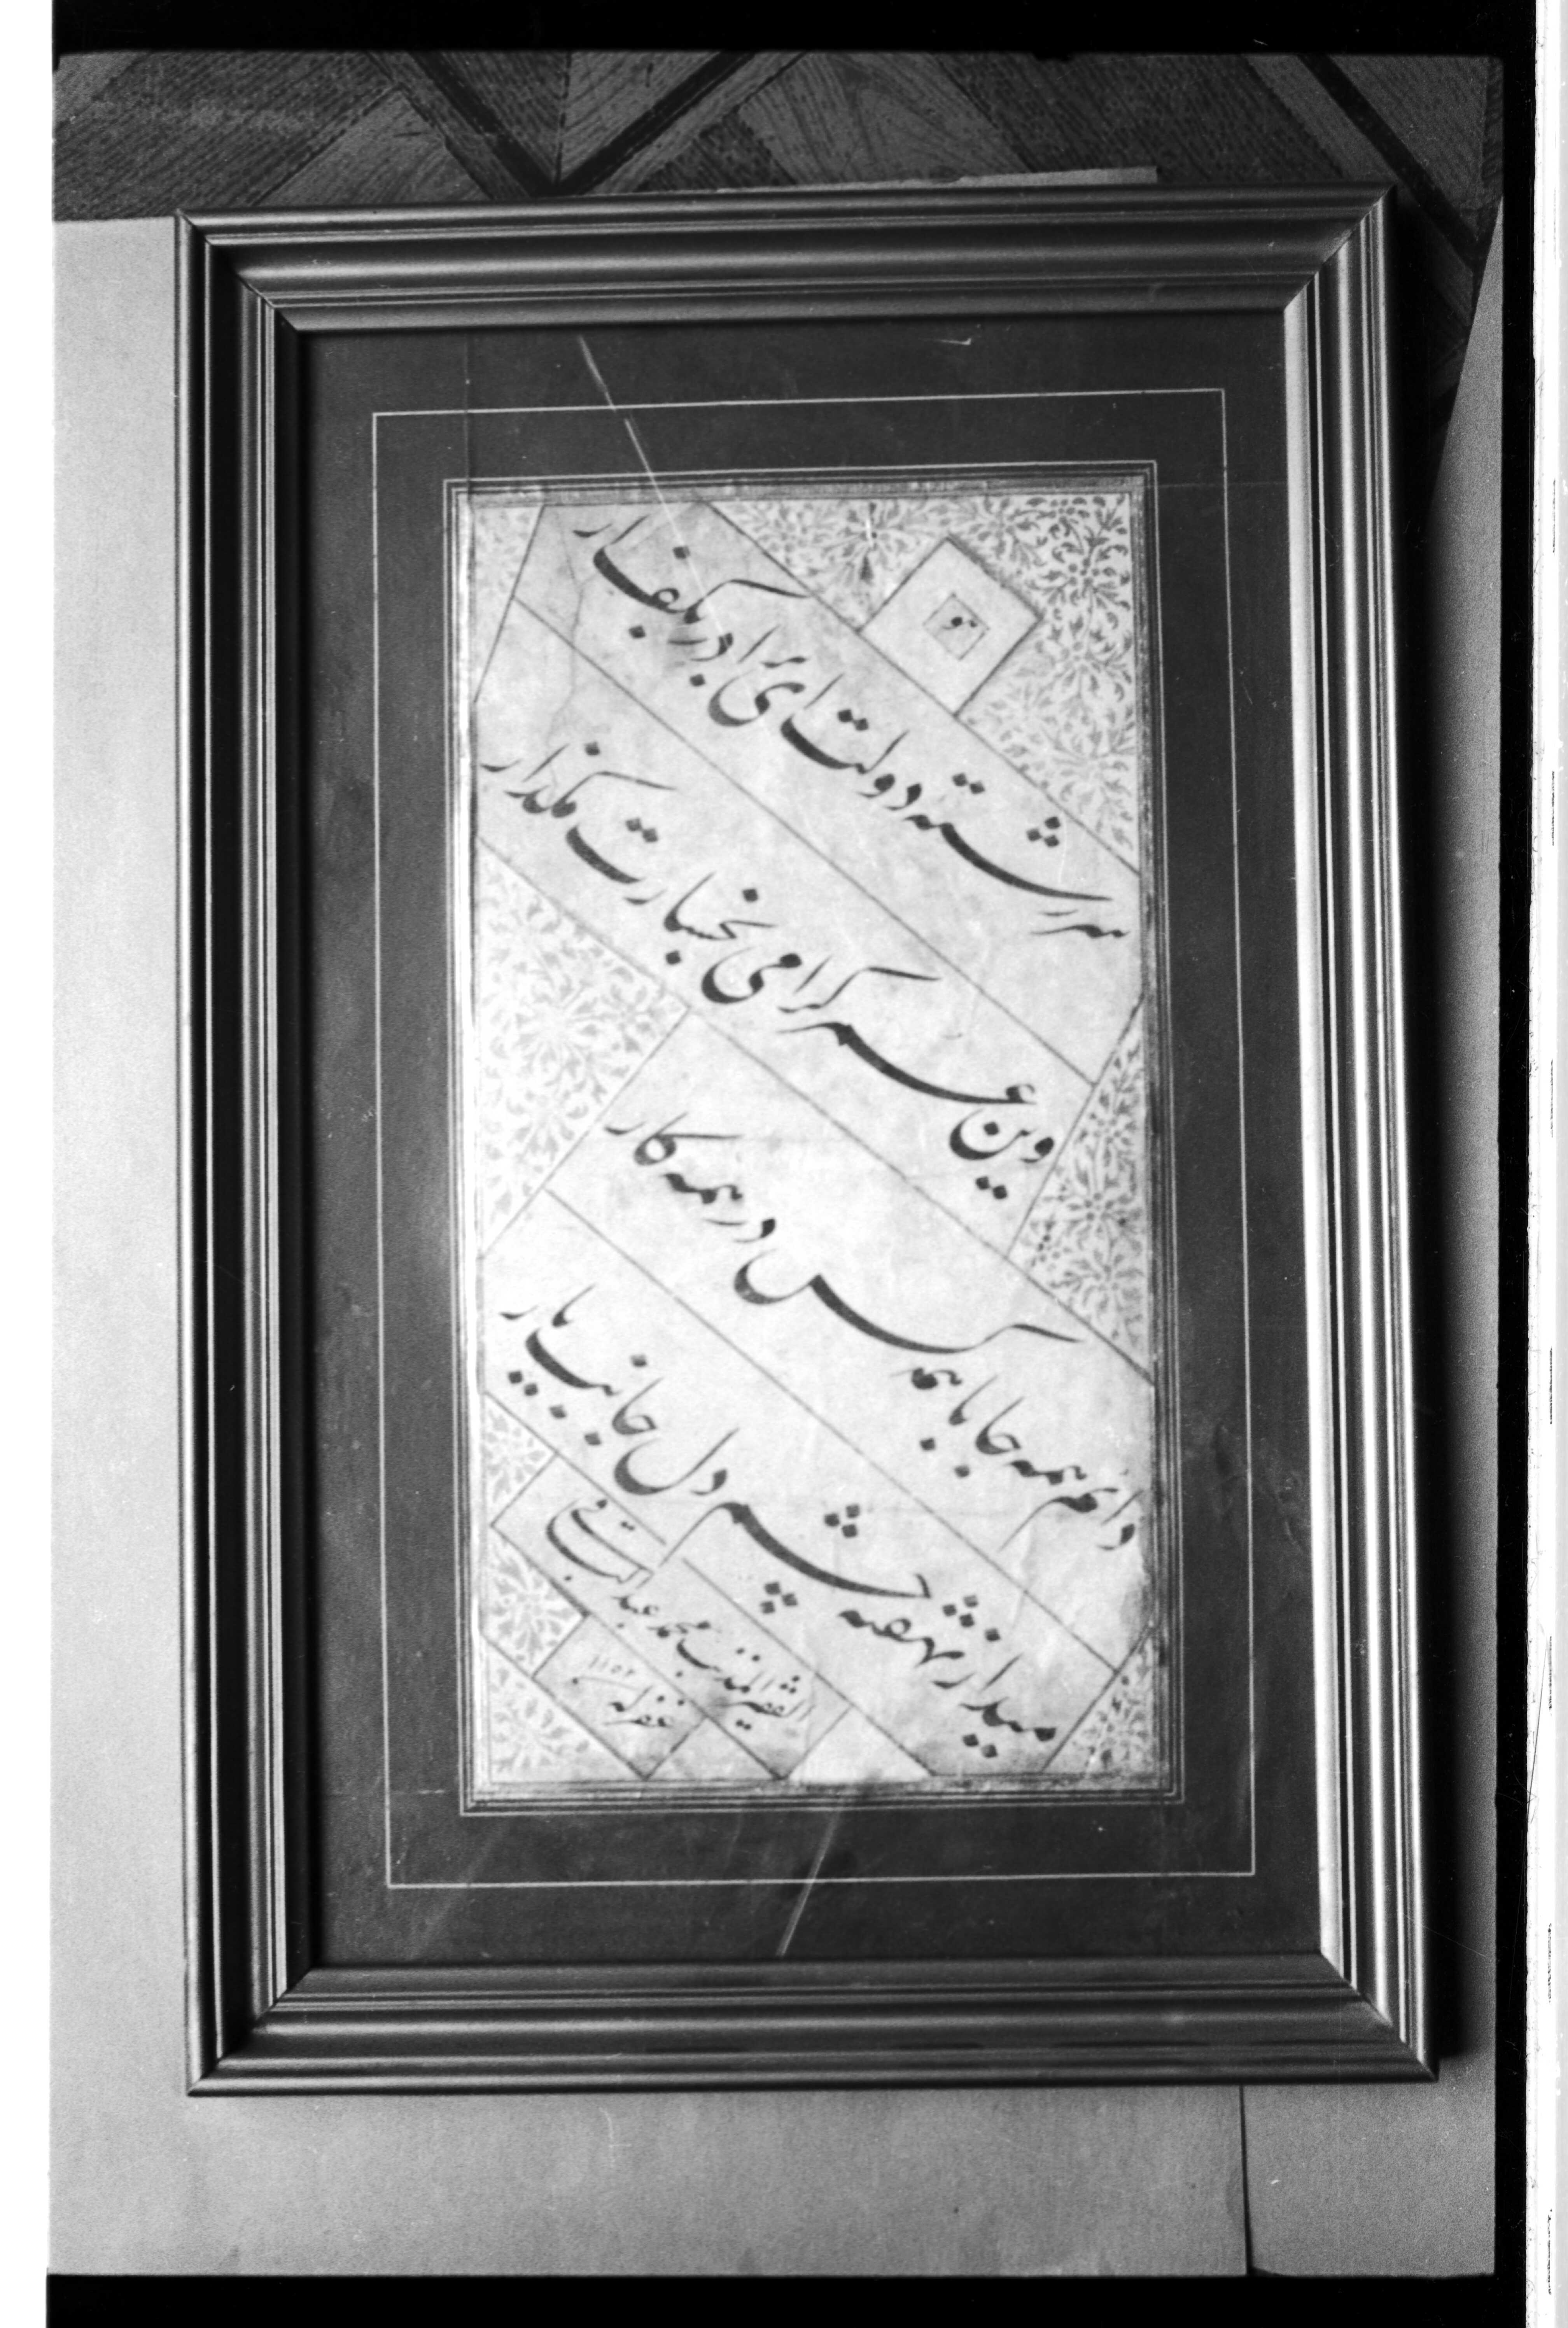 هو
سررشته دولت ای برادر بکف آر
وین عمر کرامی بخسارت مکذار
دائم همه جا با همه کس در همه کار
میدار نهفته چشم دل جانب یار
الفقیر المذنب محمد
غفرله ۱۱۵۲